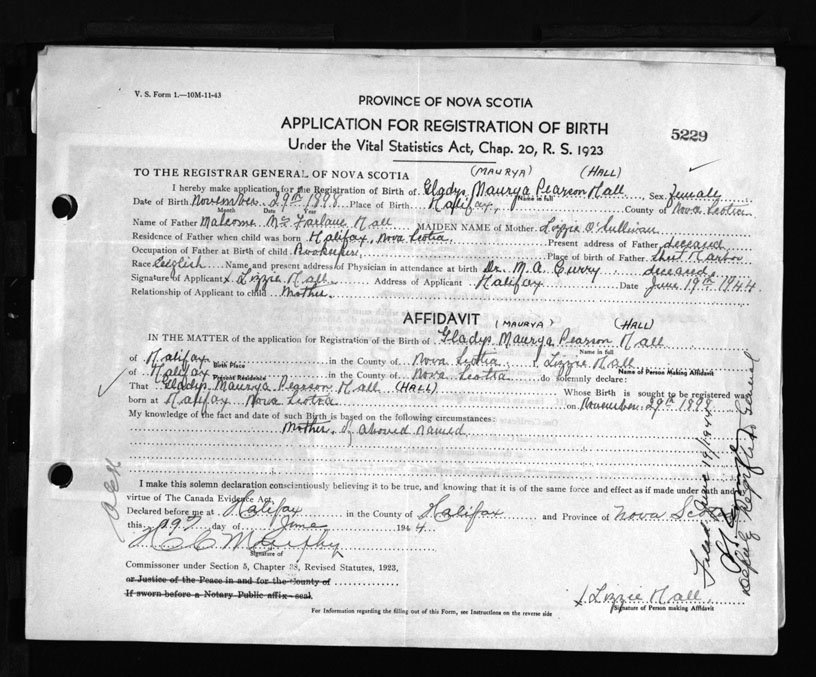 V. S. Form 1.—10M-11-43
PROVINCE OF NOVA SCOTIA
APPLICATION FOR REGISTRATION OF BIRTH
5229
Under the Vital Statistics Act, Chap. 20, R. S. 1923
TO THE REGISTRAR GENERAL OF NOVA SCOTIA (MAURYA) (HALL)
I hereby make application for the Registration of Birth of Gladys Maurya Pearson Hall Sex Female
Name in full
Date of Birth November 29th 1898 Place of Birth Halifax, County of Nova Scotia
Month Date Year
Name of Father Malcome McFarlane Hall MAIDEN NAME of Mother Lizzie O'Sullivan
Residence of Father when child was born Halifax, Nova Scotia, Present address of Father deceased
Occupation of Father at Birth of child Bookeeper, Place of birth of Father Sheet Harbor
Race English Name and present address of Physician in attendance at birth Dr. M. A. Curry deceased,
Signature of Applicant x Lizzie Hall Address of Applicant Halifax Date June 19th 1944.
Relationship of Applicant to child Mother.
AFFIDAVIT (MAURYA) (HALL)
IN THE MATTER of the application for Registration of the Birth of Gladys Maurya Pearson Hall
Name in full
of Halifax in the County of Nova Scotia I Lizzie Hall
Birth Place Name of Person Making Affidavit
of Halifax in the County of Nova Scotia do solemnly declare:
Present Residence
That Gladys Maurya Pearson Hall (HALL) Whose Birth is sought to be registered was
born at Halifax Nova Scotia on November 29th 1898
My knowledge of the fact and date of such Birth is based on the following circumstances:
Mother. of aboved named
I make this solemn declaration conscientiously believing it to be true, and knowing that it is of the same force and effect as if made under oath and
virtue of The Canada Evidence Act,
Declared before me at Halifax in the County of Halifax and Province of Nova Scotia
this 19th day of June 1944.
Signature of
Commissioner under Section 5, Chapter 38, Revised Statutes, 1923,
or Justice of the Peace in and for the County of
If sworn before a Notary Public affix seal.
x Lizzie Hall
Signature of Person making Affidavit
For Information regarding the filling out of this Form, see Instructions on the reverse side
Filed. June 19/1944
Deputy Registrar General